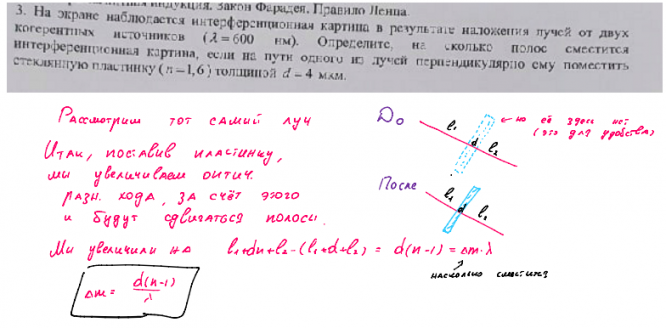 индукция. Закон Фарадея. Правило Ленца.
3. На экране наблюдается интерференционная картина в результате наложения лучей от двух
когерентных источников (λ=600 нм). Определите, на сколько полос сместится
интерференционная картина, если на пути одного из лучей перпендикулярно ему поместить
стеклянную пластинку (n=1,6) толщиной d=4 мкм.
Рассмотрим тот самый луч
До
l₁
d
l₂
но её здесь нет
(это для удобства)
Итак, поставив пластинку,
мы увеличиваем оптич.
разн. хода, за счёт этого
и будут сдвигаться полосы.
После
l₁
d
l₂
Мы увеличили на l₁+dn+l₂-(l₁+d+l₂) = d(n-1) = Δm·λ
насколько сместится
Δm = d(n-1)/λ